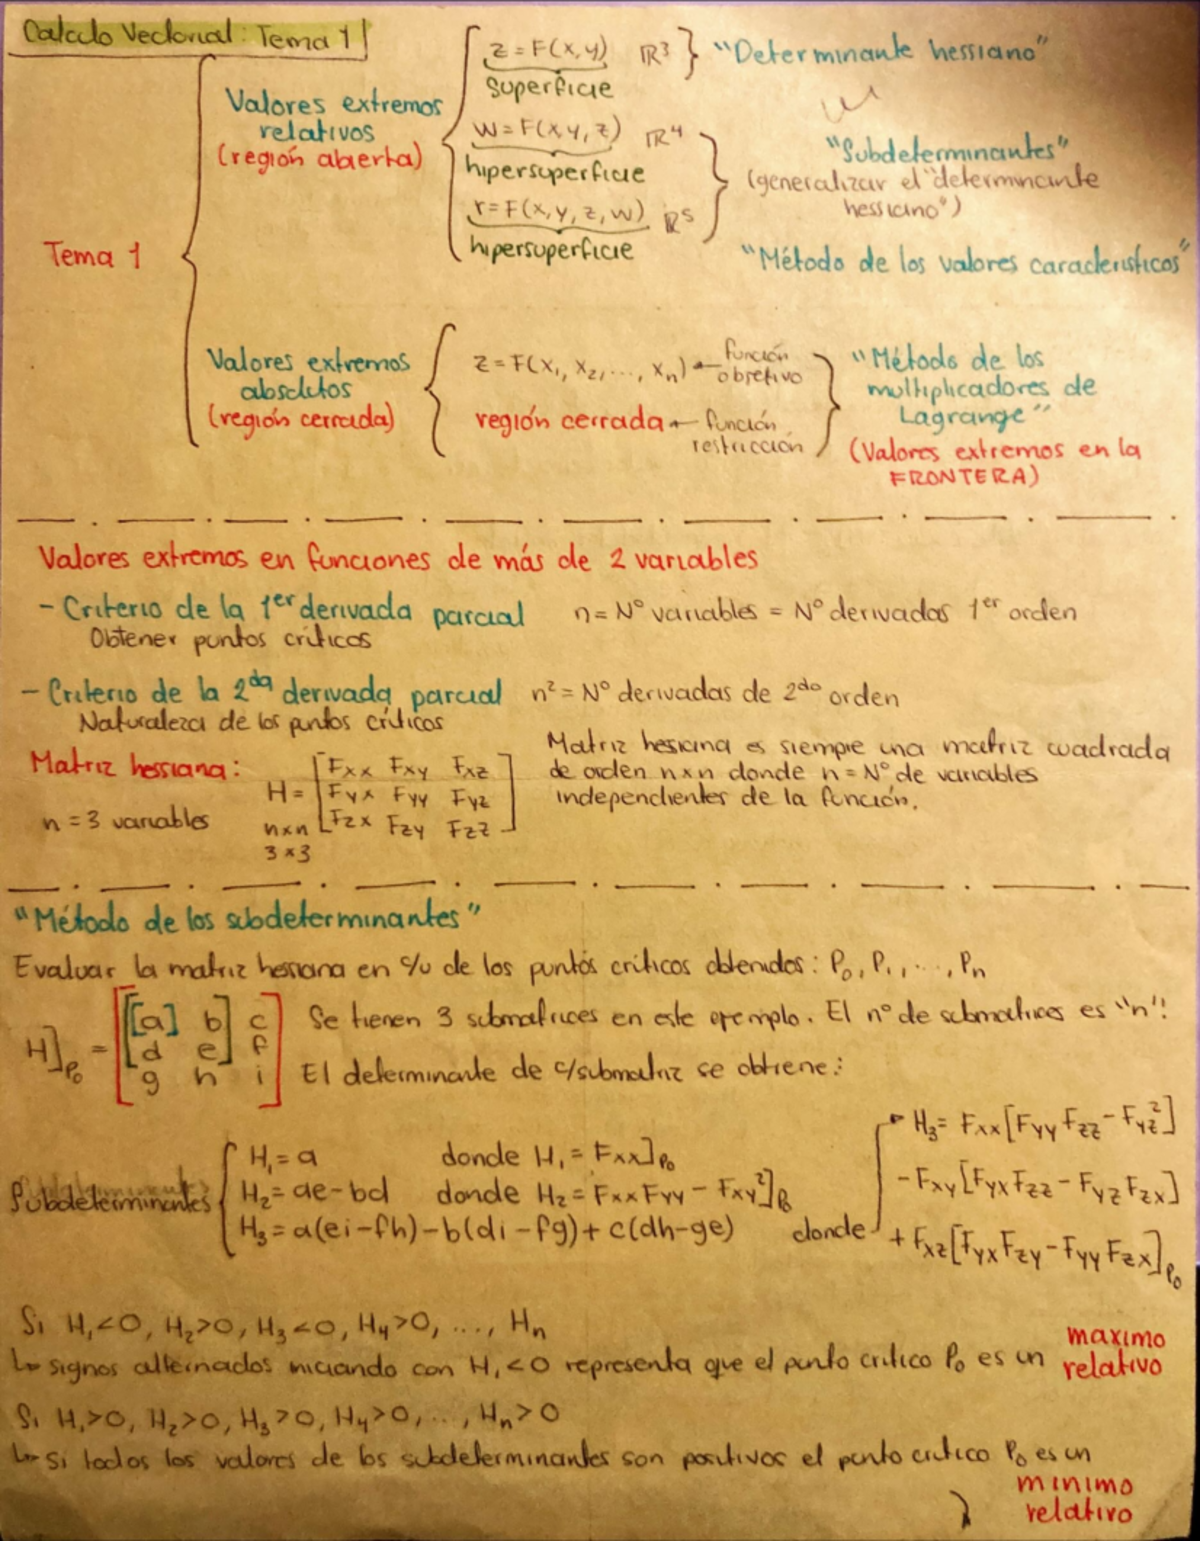 Calculo Vectorial: Tema 1
Tema 1
Valores extremos
relativos
(región abierta)
z = F(x,y) ℝ³ } "Determinante hessiano"
superficie
w = F(x,y,z) ℝ⁴
hipersuperficie
r = F(x,y,z,w) ℝ⁵
hipersuperficie
"Subdeterminantes"
(generalizar el "determinante
hessiano")
"Método de los valores característicos"
Valores extremos
absolutos
(región cerrada)
z = F(x₁, x₂, ..., xₙ) ← función
objetivo
región cerrada ← función
restricción
"Método de los
multiplicadores de
Lagrange"
(Valores extremos en la
FRONTERA)
Valores extremos en funciones de más de 2 variables
- Criterio de la 1er derivada parcial n = N° variables = N° derivadas 1er orden
Obtener puntos críticos
- Criterio de la 2da derivada parcial n² = N° derivadas de 2do orden
Naturaleza de los puntos críticos
Matriz hessiana:
n = 3 variables
H =
n×n
3×3
Fxx Fxy Fxz
Fyx Fyy Fyz
Fzx Fzy Fzz
Matriz hesiana es siempre una matriz cuadrada
de orden n×n donde n = N° de variables
independientes de la función.
"Método de los subdeterminantes"
Evaluar la matriz hessiana en c/u de los puntos críticos obtenidos: P₀, P₁, ..., Pₙ
H]P₀ =
[a] b c
d e f
g h i
Se tienen 3 submatrices en este ejemplo. El n° de submatrices es "n"!
El determinante de c/submatriz se obtiene:
Subdeterminantes
H₁ = a donde H₁ = Fxx]P₀
H₂ = ae-bd donde H₂ = FxxFyy - Fxy²]P₀
H₃ = a(ei-fh)-b(di-fg)+c(dh-ge) donde
H₃ = Fxx[FyyFzz - Fyz²]
-Fxy[FyxFzz - FyzFzx]
+Fxz[FyxFzy - FyyFzx]P₀
Si H₁<0, H₂>0, H₃<0, H₄>0, ..., Hₙ
↳ signos alternados iniciando con H₁<0 representa que el punto critico P₀ es un maximo
relativo
Si H₁>0, H₂>0, H₃>0, H₄>0, ..., Hₙ>0
↳ si todos los valores de los subdeterminantes son positivos el punto critico P₀ es un
minimo
relativo